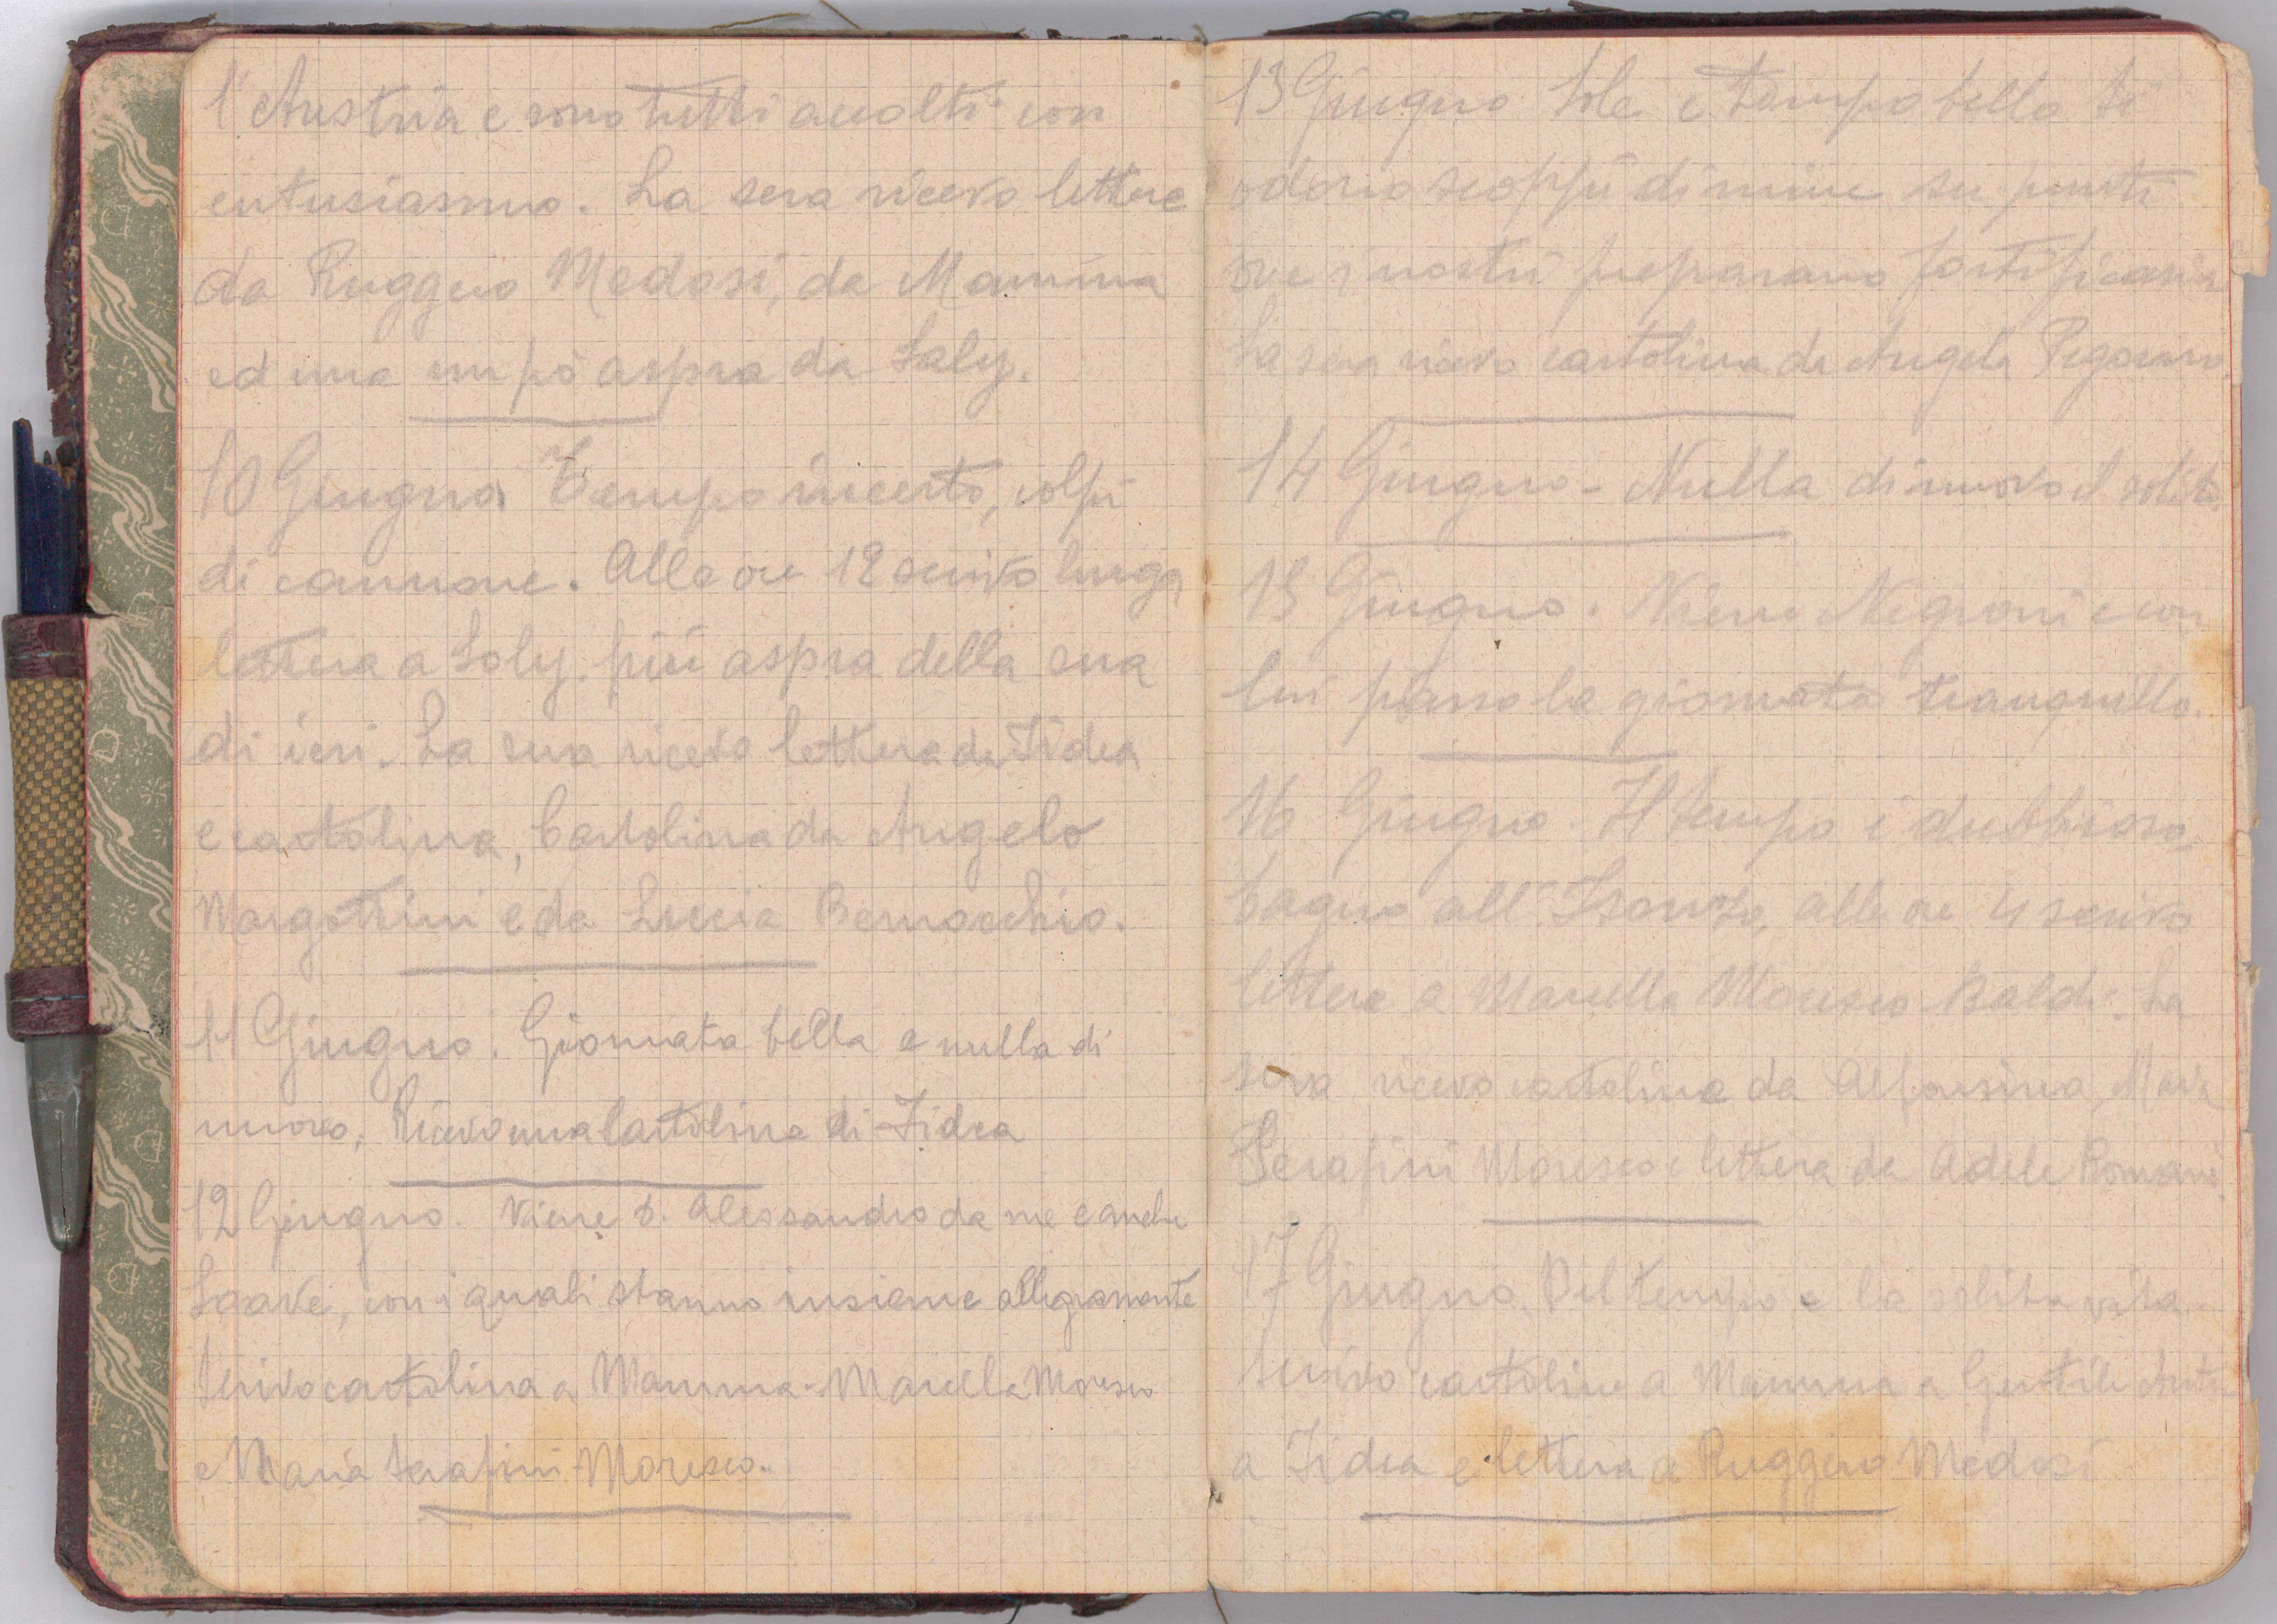 l'Austria e sono tutti accolti con
entusiasmo. La sera ricevo lettere
da Ruggero Medosi, da Mamma
ed una un pò aspra da Laly.
10 Giugno Tempo incerto, colpi
di cannone. Alle ore 12 scrivo lunga
lettera a Laly. più aspra della sua
di ieri. La sera ricevo lettera da Fidea
e cartolina, Cartolina da Angelo
Margottini e da Lucia Bernocchio.
11 Giugno. Giornata bella e nulla di
nuovo, Ricevo una Cartolina di Fidea
12 Giugno. Viene d. Alessandro da me e anche
con i quali stanno insieme allegramente
Scrivo cartolina a Mamma - Marcella Moresco
e Maria Serafini - Moresco.
13 Giugno Sole e tempo bello Si
odono scoppi di mine su punti
ove i nostri preparano fortificazion
La sera ricevo cartolina da Angela
14 Giugno - Nulla di nuovo il solito
15 Giugno. Viene Negroni e con
lui passo la giornata tranquillo.
16 Giugno - Il tempo è dubbioso,
bagno all'Isonzo, alle ore 4 scrivo
lettere a Marcella Moresco Baldi. La
sera ricevo cartolina da Alfonsina, Maria
Serafini Moresco e lettera da Adele Romani.
17 Giugno. Bel tempo e la solita vita.
Scrivo cartoline a Mamma a Gentile
a Fidea e lettera a Ruggero Medosi